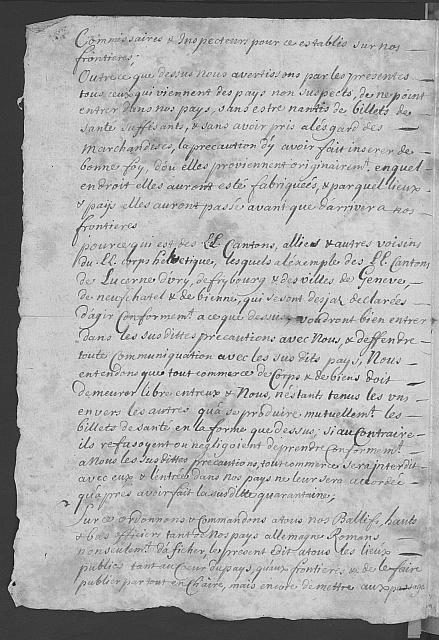 Commissaires & Inspecteurs pour ce establis sur nos
frontieres;
Outre ce que dessus Nous avertissons par les presentes
tous ceux qui viennent des pays non suspects, de ne point
entrer dans nos pays, sans estre nantis de billets de
sante suffisants, & sans avoir pris a lésgard des
Marchandises, la precaution d'y avoir fait inserer de
bonne foy, d'ou elles proviennent originairemt. en quel
endroit elles auront esté fabriqueés, & par quel lieux
& pays elles auront passé avant que d'arriver a nos
frontieres
pour ce qui est des LL. Cantons, alliés & autres voisins
du LL. Corps helvetique, lesquels a lexemple des LL. Cantons
de Lucerne d'vry, de frybourg & des villes de Geneve,
de neufchatel & de bienne, qui se sont desja declarées
d'agir Conformemt. a ce que dessus, voudront bien entrer
dans les susdittes precautions avec Nous, & deffendre
toute communiquation avec les susdits pays, Nous
entendons que tout commerce de Corps & de biens doit
demeuror libre entreux & Nous, n'éstants tenus les vns
envers les autres qu'a se produire mutuellemt. les
billets de santé en la forme que dessus; si au Contraire
ils refusoyent ou negligoient de prendre conformemt.
a Nous les susdittes precautions, tout commerce sera interdit
avec eux & l'entréé dans nos pays ne leur sera accordeé
qu'apres avoir fait la susditte quarantaine;
Sur ce ordonnons & Commandons a tous nos Ballifs, hauts
& bas officiers tant de Nos pays allemagne Romans
non seulemt. d'aficher, le present édit a tous les lieux
publics tant au Coeur du pays, qu'aux frontieres, & de le faire
publier par tout en Chaire, mais encore de mettre aux passage